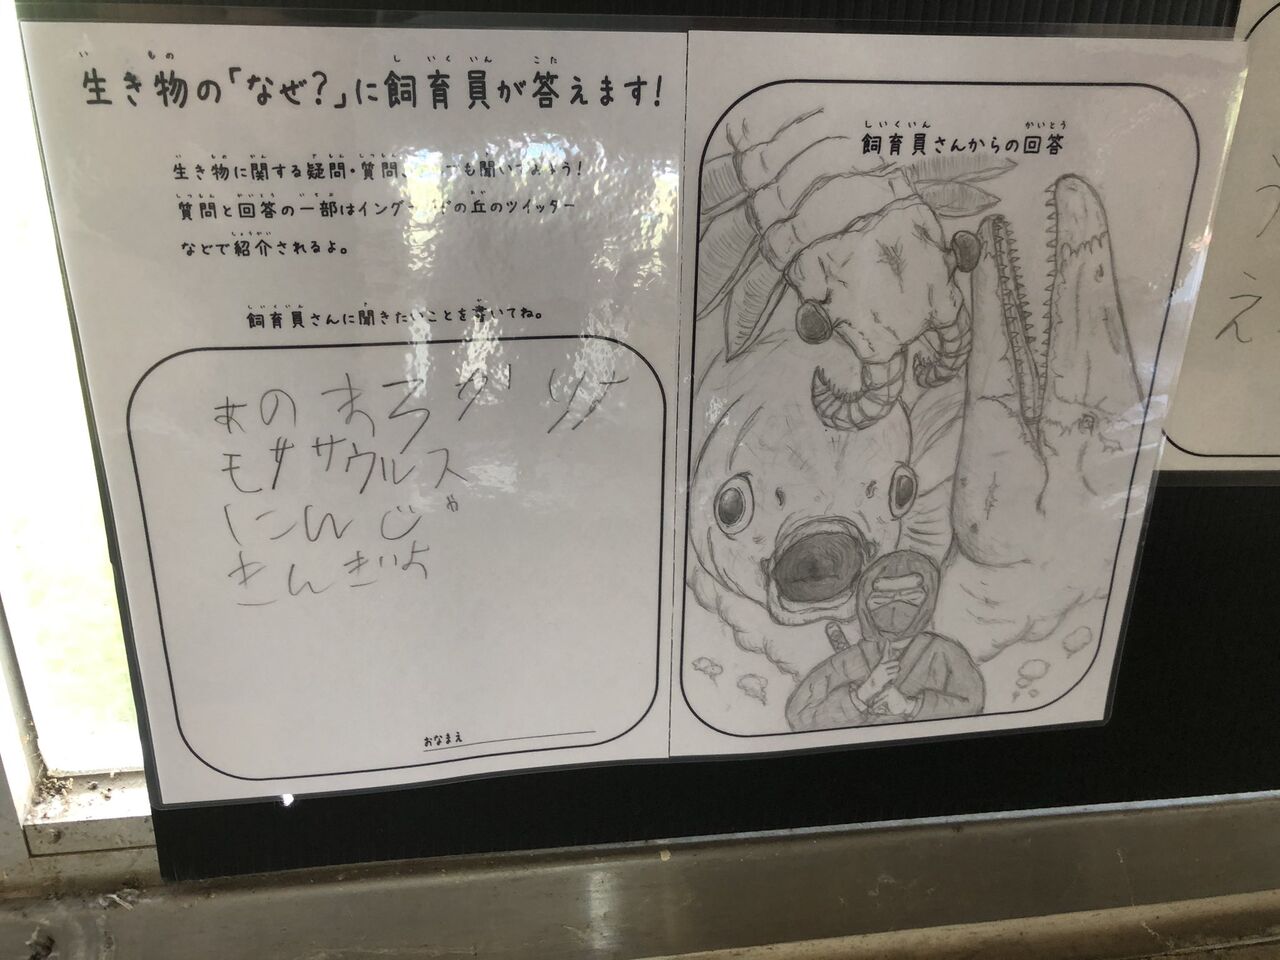 生き物の「なぜ?」に飼育員が答えます!
生き物に関する疑問・質問、も聞いてみよう!
質問と回答の一部はイングの丘のツイッター
などで紹介されるよ。
飼育員さんに聞きたいことを書いてね。
モササウルス
にんじゃ
きんぎよ
おなまえ
飼育員さんからの回答
え